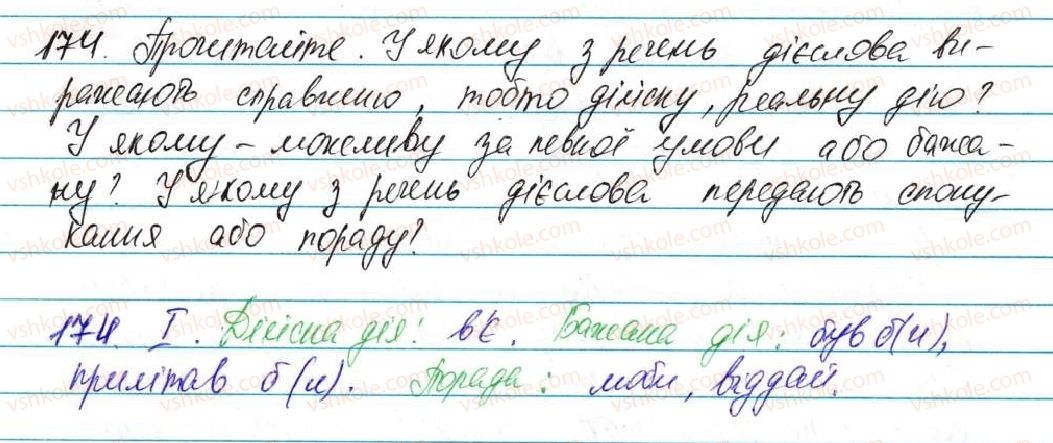 174. Прочитайте. У якому з речень дієслова ви-
ражають справжню, тобто дійсну, реальну дію?
У якому – можливу за певної умови або бажа-
ну? У якому з речень дієслова передають спону-
кання або пораду?
174. І. Дійсна дія: в'є. Бажана дія: був б(и),
прилітав б(и). Порада: люби, віддай.